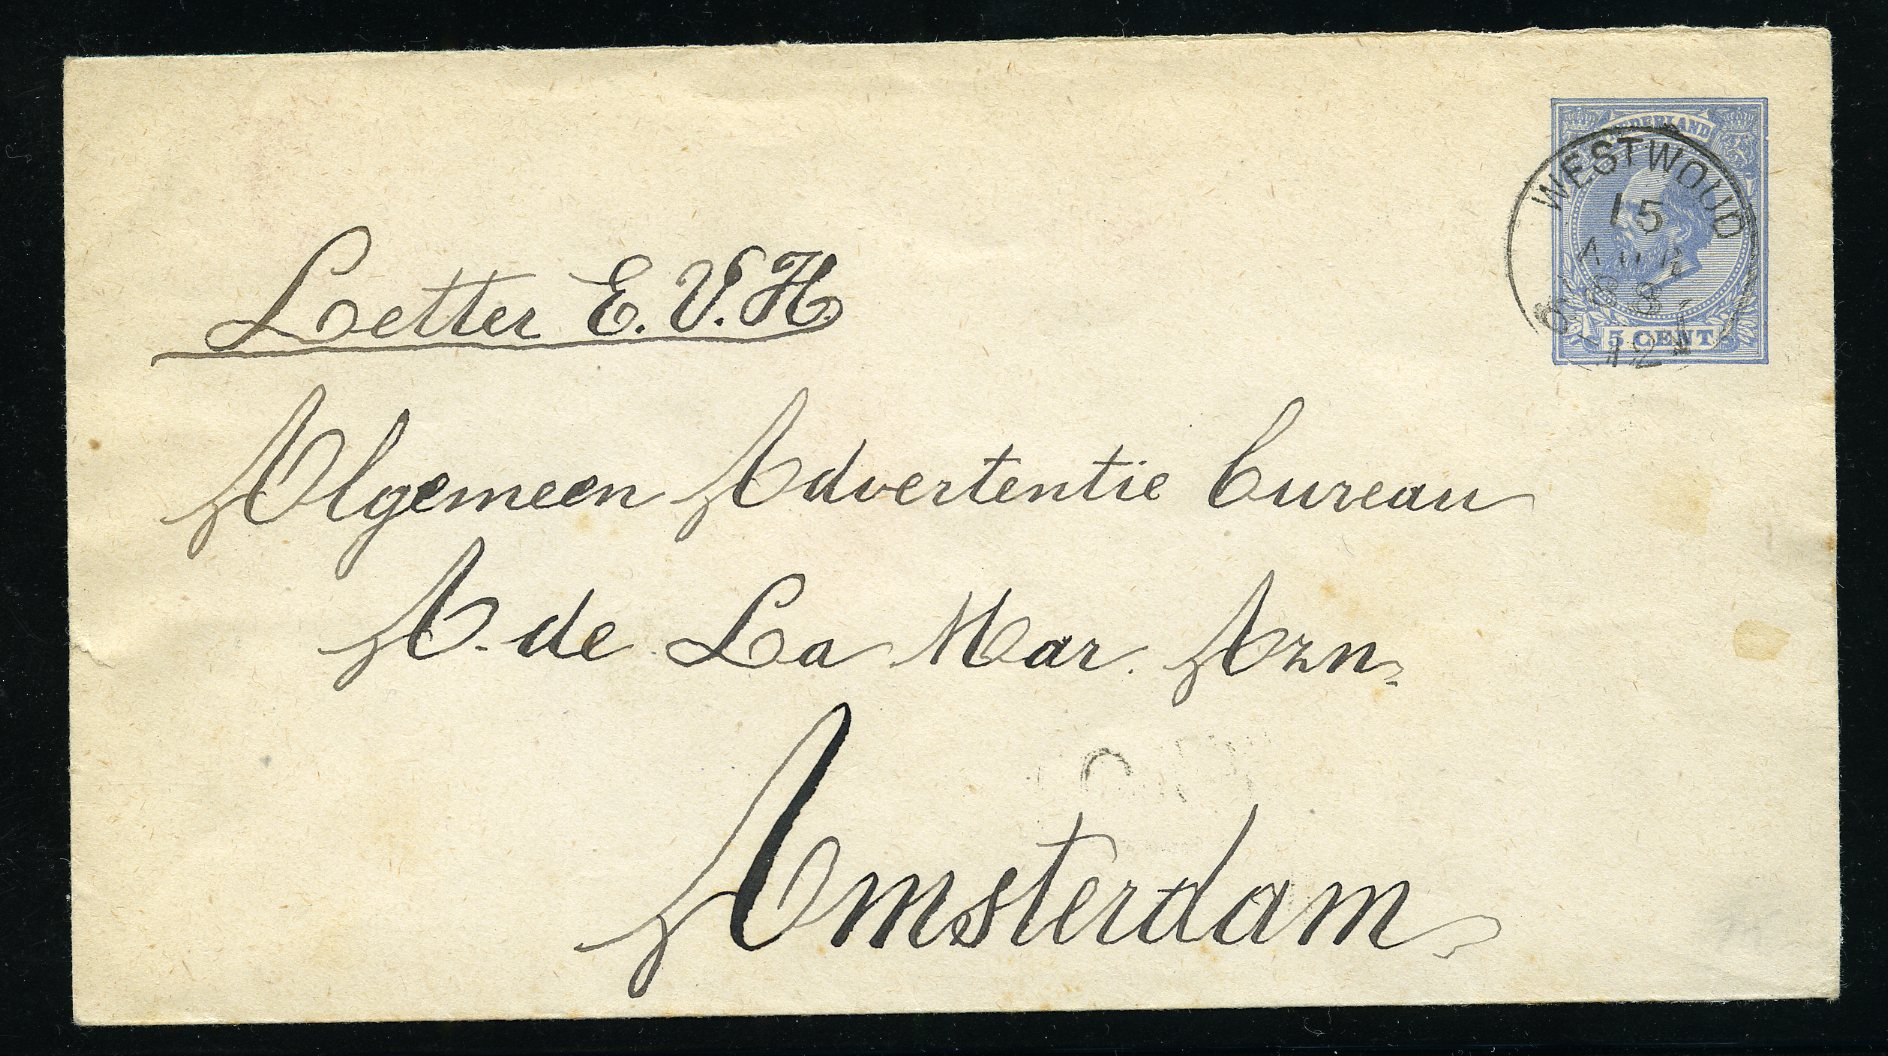 NEDERLAND
WESTWOUD
15
88
5 CENT
Letter E. V. H.
Algemeen Advertentie bureau
A. de La Mar. Azn.
Amsterdam